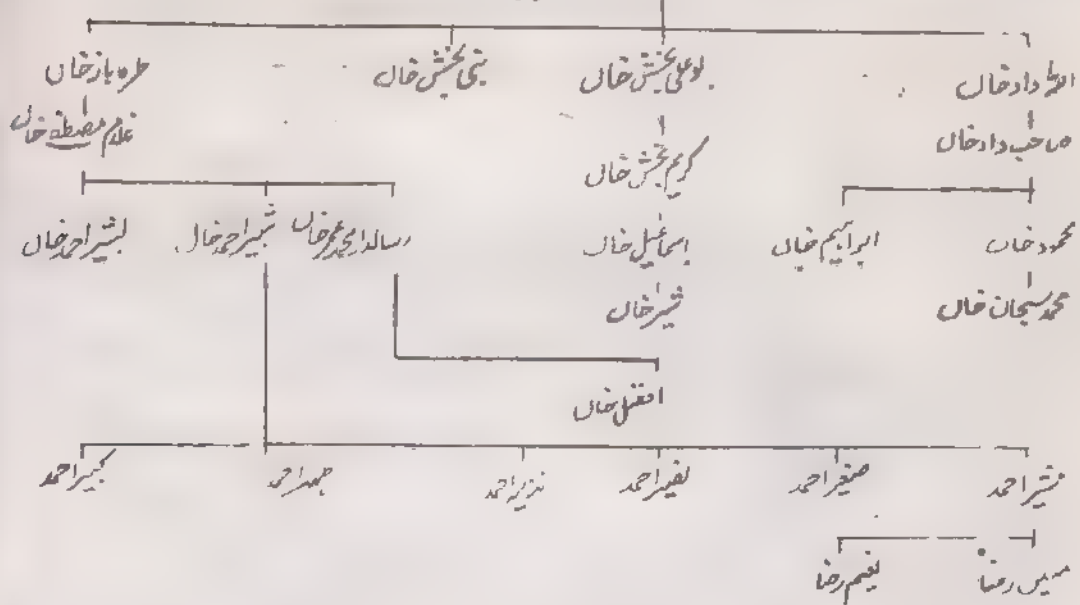 اللہ داد خاں بو علی بخش خاں نبی بخش خاں طرہ باز خاں
صاحب داد خاں کریم بخش خاں غلام مصطفےٰ خاں
محمود خاں ابراہیم خاں اسماعیل خاں رسالدار محمد عمر خاں شبیر احمد خاں بشیر احمد خاں
محمد سبحان خاں شیر خاں
افضل خاں
صغیر احمد نصیر احمد نذیر احمد کبیر احمد
رضا نعیم رضا